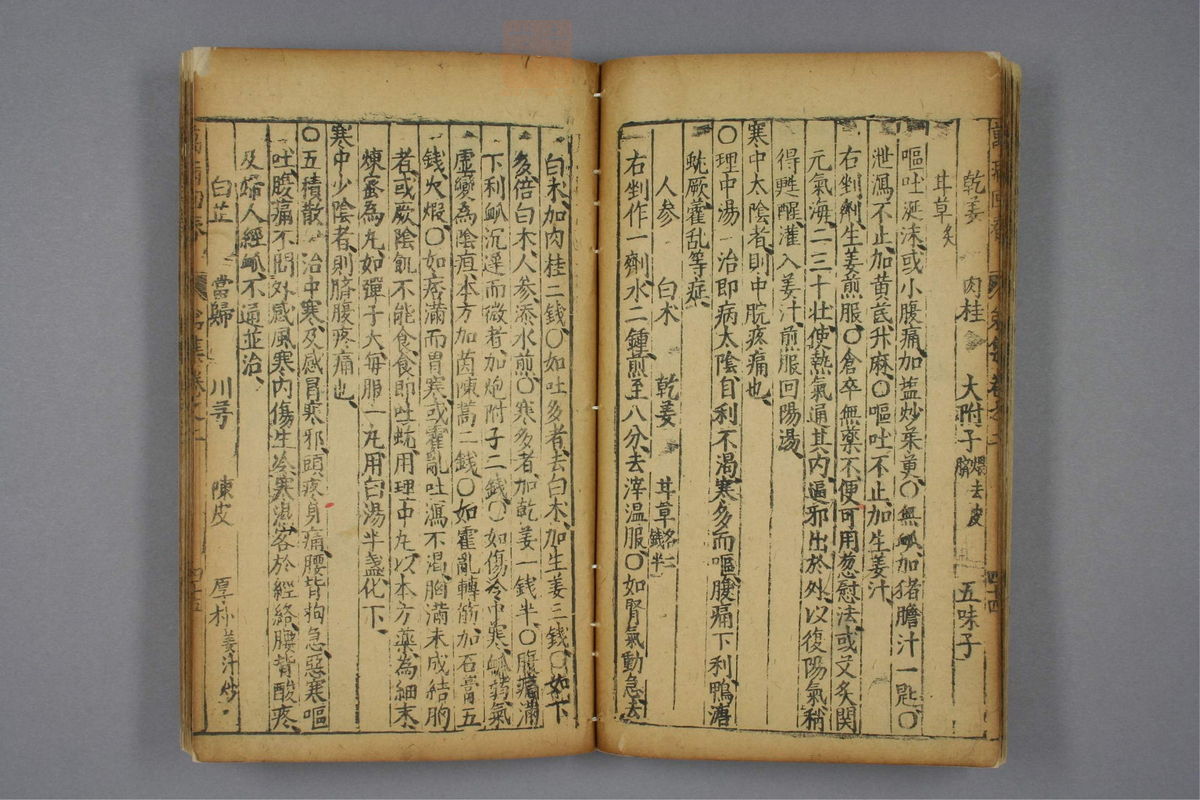 乾姜 肉桂 大附子煨去皮臍 五味子
甘草炙
嘔吐涎沫或小腹痛加盐炒茱萸〇無脉加猪膽汁一匙〇
泄瀉不止加黄芪升麻〇嘔吐不止加生姜汁
右剉劑生姜煎服〇倉卒無藥不便可用葱慰法或艾炙関
元氣海二三十壮使熱氣通其内逼邪出於外以復陽氣稍
得甦醒灌入姜汁煎服回陽湯
寒中太陰者則中脘疼痛也
〇理中湯 治即病太陰自利不渴寒多而嘔腹痛下利鴨溏
蚘厥藿乱等症
人参 白术 乾姜 甘草各二錢半
右剉作一劑水二鍾煎至八分去滓温服〇如腎氣動急去
白术加肉桂二錢〇如吐多者去白术加生姜三錢〇如下
多倍白术人参添水煎〇寒多者加乾姜一錢半〇腹痛滿
下利脉沉遲而微者加炮附子二錢〇如傷冷中寒脉弱氣
虚變為陰疸本方加茵陳蒿二錢〇如霍亂轉筋加石膏五
錢火煅〇如痞滿而胃寒或霍亂吐瀉不渴胸滿未成結胸
者或厥陰飢不能食食即吐蚘用理中丸以本方藥為細末
煉蜜為丸如彈子大每服一丸用白湯半盞化下
寒中少陰者則臍腹疼痛也
〇五積散 治中寒及感冒寒邪頭疼身痛腰背拘急惡寒嘔
吐腹痛不問外感風寒内傷生冷寒濕客於經絡腰背酸疼
及婦人經脉不通並治
白芷 當歸 川芎 陳皮 厚朴姜汁炒